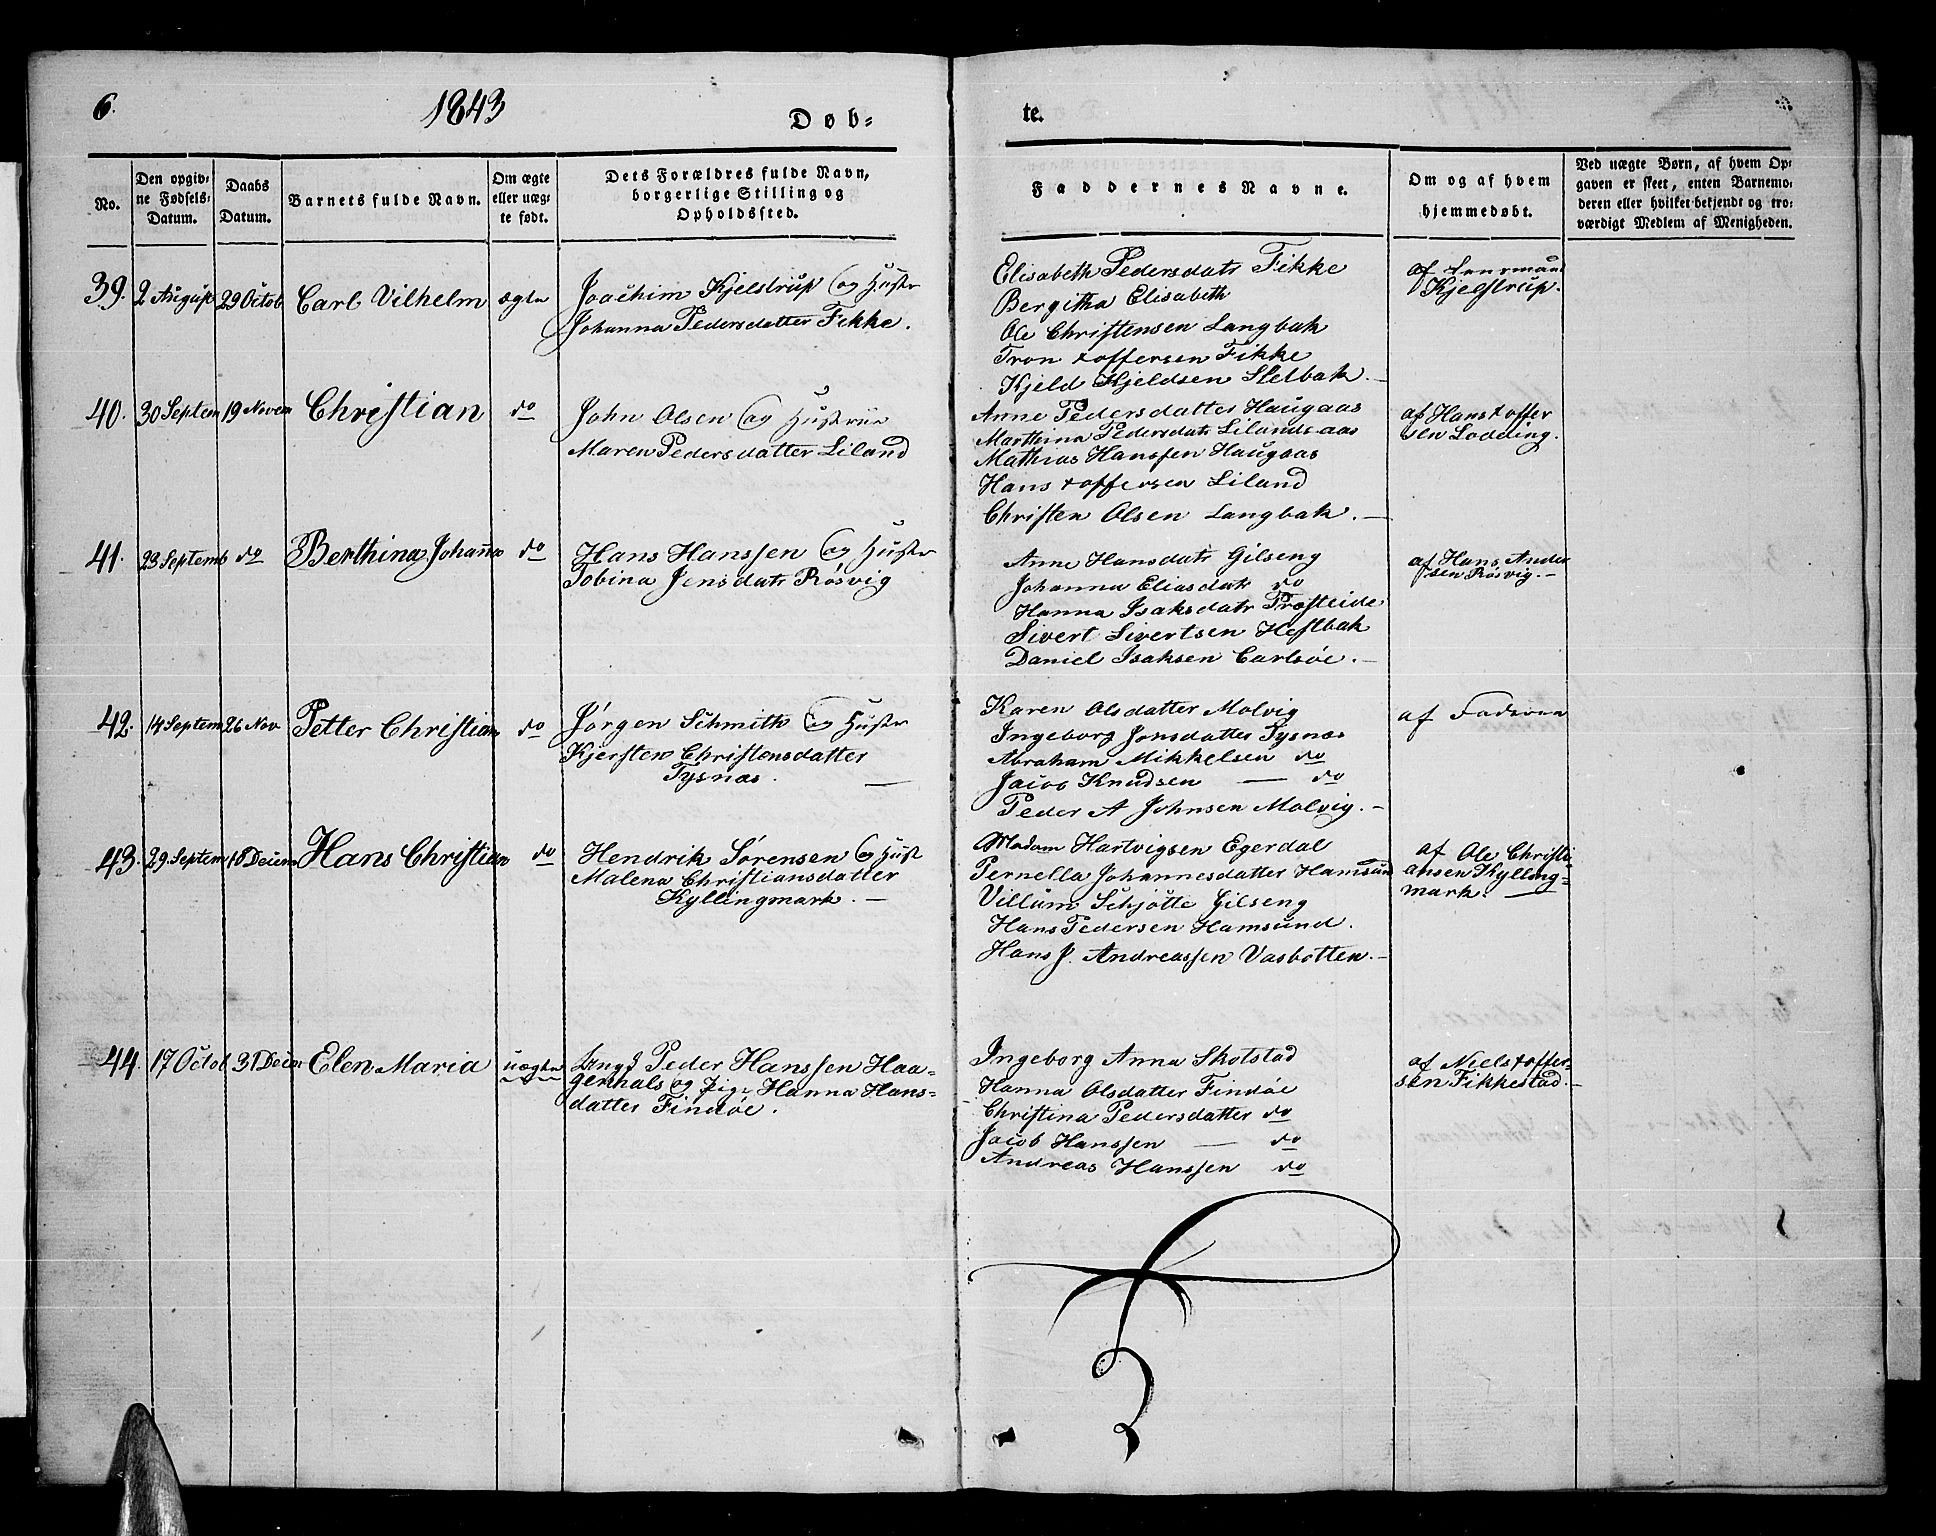 6.
1843
Døb-
te.
No.
Den opgiv-
ne Fødsels-
Datum.
Daabs
Datum.
Barnets fulde Navn.
Om ægte
eller uæg-
te født.
Dets Forældres fulde Navn,
borgerlige Stilling og
Opholdssted.
Faddernes Navne.
Om og af hvem
hjemmedøbt.
Ved uægte Børn, af hvem Op-
gaven er skeet, enten Barnemo-
deren eller hvilket bekjendt og tro-
værdigt Medlem af Menigheden.
39. 2 August 29 Octob Carl Vilhelm ægte
Joachim Kjelstrup og Hustr
Johanna Pedersdatter Fikke.
Elisabeth Pedersdatr Fikke
Bergitha Elisabeth
Ole Christensen Langbak
Tron xoffersen Fikke
Kjeld Kjeldsen Sletbak.
af Lensmand
Kjelstrup.
40. 30 Septem 19 Novem Christian do
John Olsen og Hustrue
Maren Pedersdatter Liland
Anne Pedersdatter Haugaas
Marthina Pedersdatr Lilandsaas
Mathias Hanssen Haugaas
Hans xoffersen Liland
Christen Olsen Langbak.
af Hans xoffer
sen Lodding.
41. 23 Septemb do Berthina Johanna do
Hans Hanssen og Hustr
Tobina Jensdatr Røsvig
Anne Hansdatr Gilseng
Johanna Eliasdatr do
Hanna Isaksdatr Trøsteide
Sivert Sivertsen Hestbak
Daniel Isaksen Carlsøe.
af Hans Ander
sen Røsvig.
42. 14 Septem 26 Nov Petter Christian do
Jørgen Schmith og Hustr
Kjersten Christensdatter
Tysnæs.
Karen Olsdatter Molvig
Ingeborg Jonsdatter Tysnæs
Abraham Mikkelsen do
Jacob Knudsen do
Peder A Johnsen Molvig.
af Faderen
43. 29 Septem 10 Decem Hans Christian do
Hendrik Sørensen og Hust
Malena Christiansdatter
Kyllingmark.
Madam Hartvigsen Egerdal
Pernella Johannesdatter Hamsund
Villum Schjøtte Gilseng
Hans Pedersen Hamsund.
Hans J. Andreassen Vasbotten.
af Ole Christi
ansen Kylling-
mark.
44. 17 Octob 31 Decbr Elen Maria uægte
Ungk Peder Hanssen Haa-
gernhals og Pige Hanna Hans-
datter Findøe.
Ingeborg Anna Skotstad
Hanna Olsdatter Findøe
Christina Pedersdatter do
Jacob Hanssen do
Andreas Hanssen do
af Niels xoffer-
sen Fikkestad.